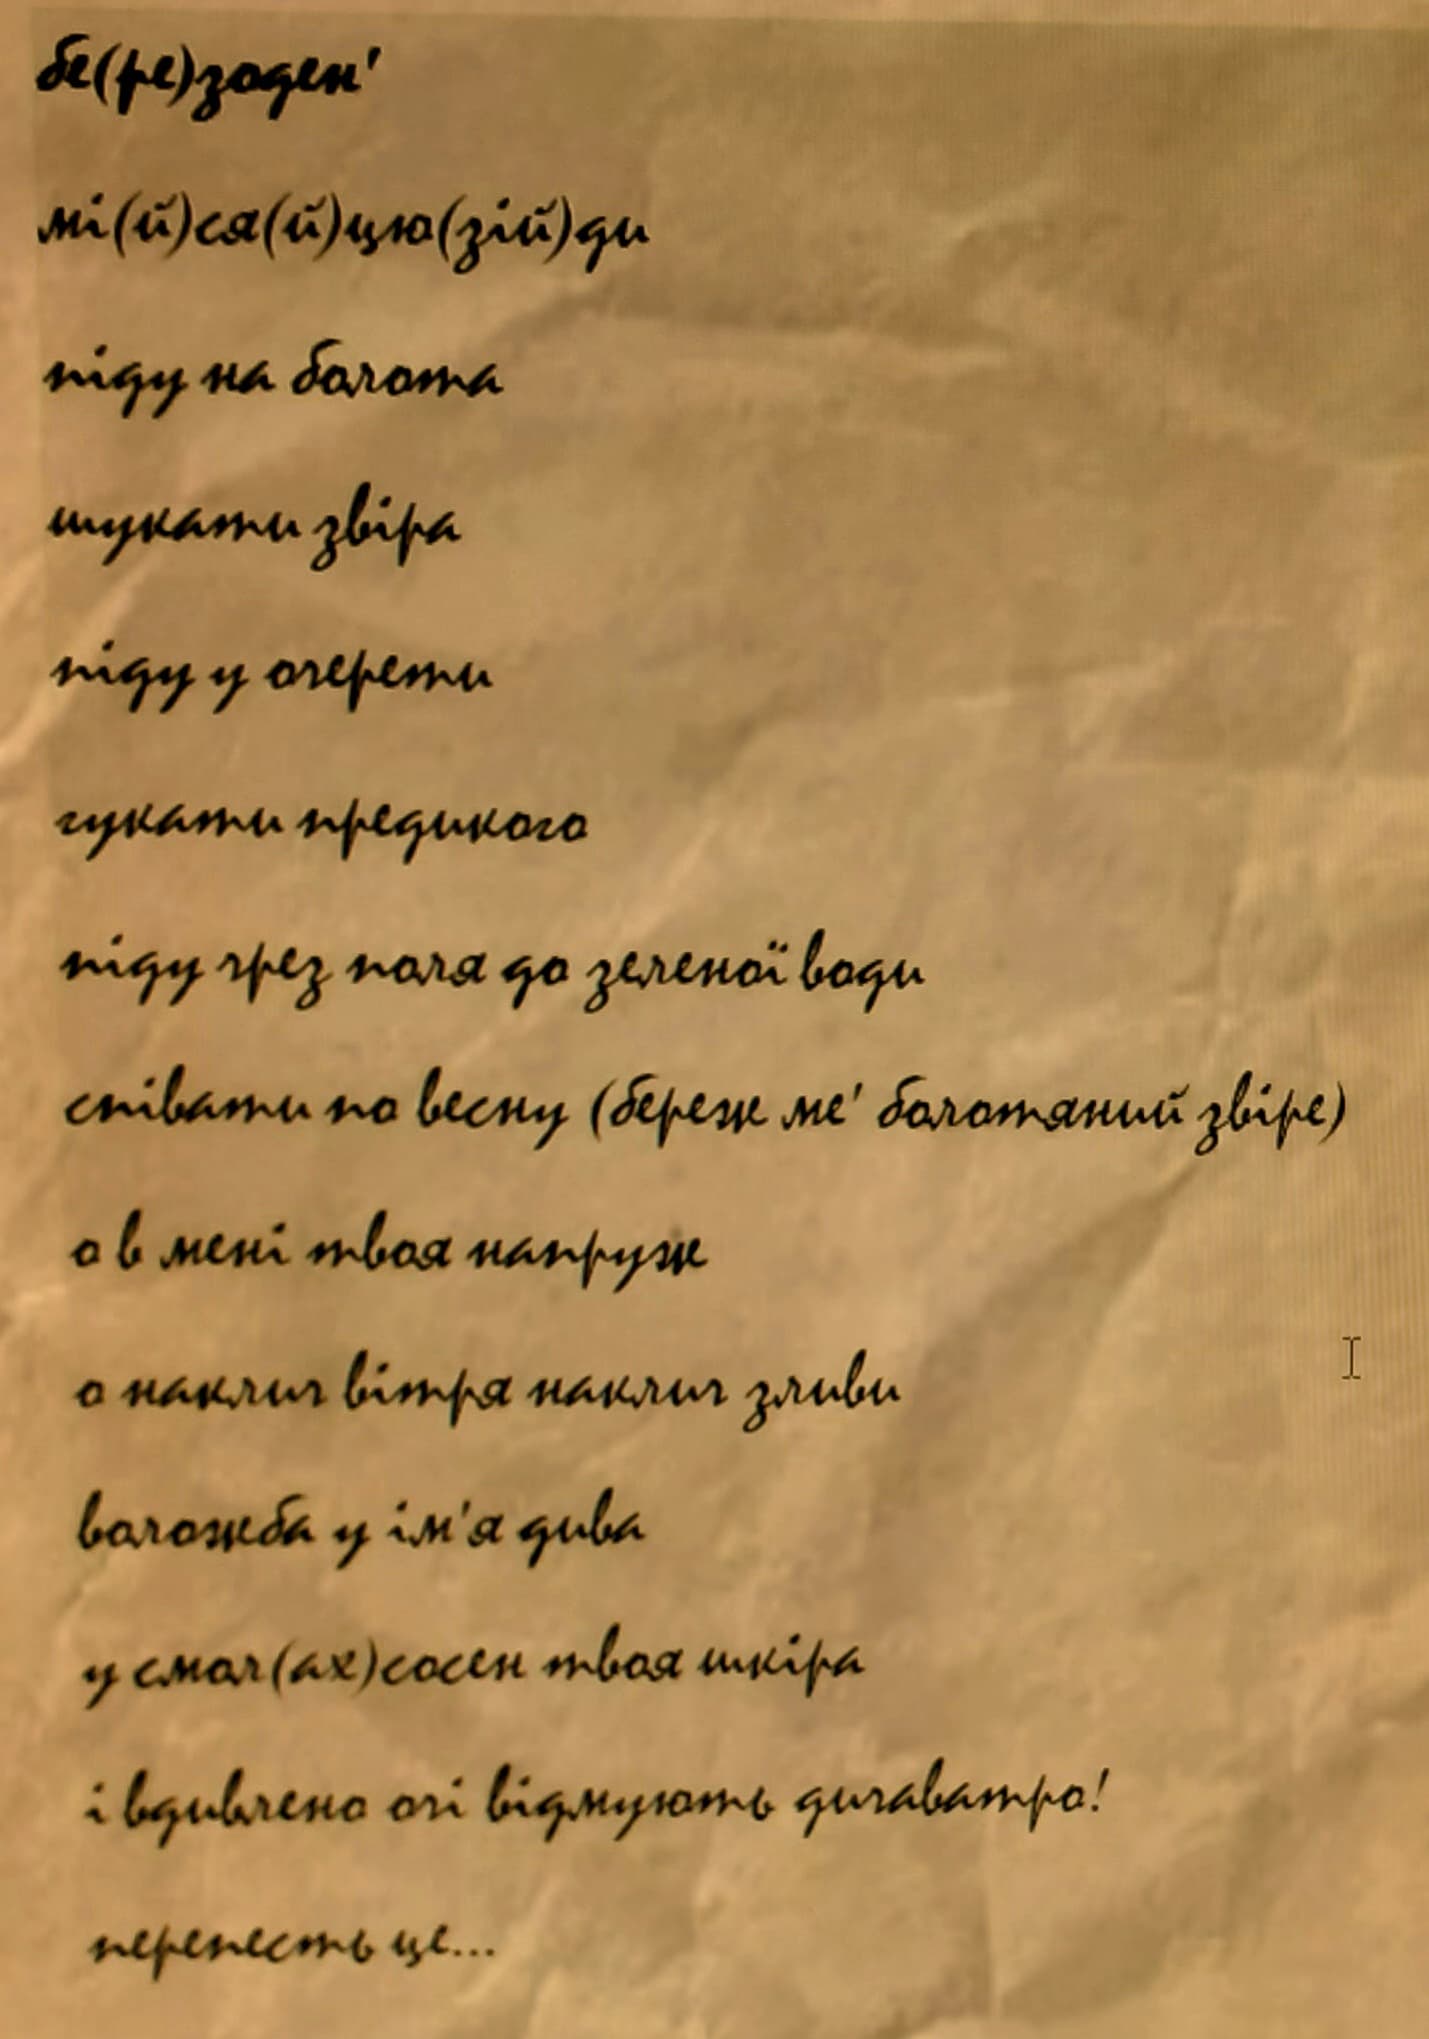 бе(ре)зоден'
мі(й)ся(й)цю(зій)ди
піду на болота
шукати звіра
піду у очерети
гукати предикого
піду чрез поля до зеленої води
співати по весну (береже ме' болотяний звіре)
о в мені твоя напруже
о наклич вітря наклич зливи
воложба у ім'я дива
у смол(ах)сосен твоя шкіра
і вдивлено очі відмують дичаватро!
перепесть це...